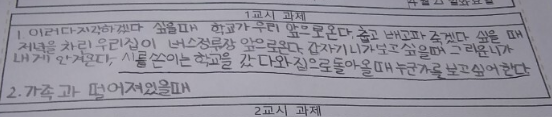 1교시 과제
1. 이러다지각하겠다 싶을때 학교가 우리 앞으로온다. 춥고 배고파 죽겠다 싶을 때
저녁을 차린 우리집이 버스정류장 앞으로온다. 갑자기 니가보고싶을때 그리운니가
내게 안겨온다. 시를쓴이는학교을 갔다와집으로돌아올때누군가를보고싶어한다
2. 가족과 떨어져있을때
2교시 과제